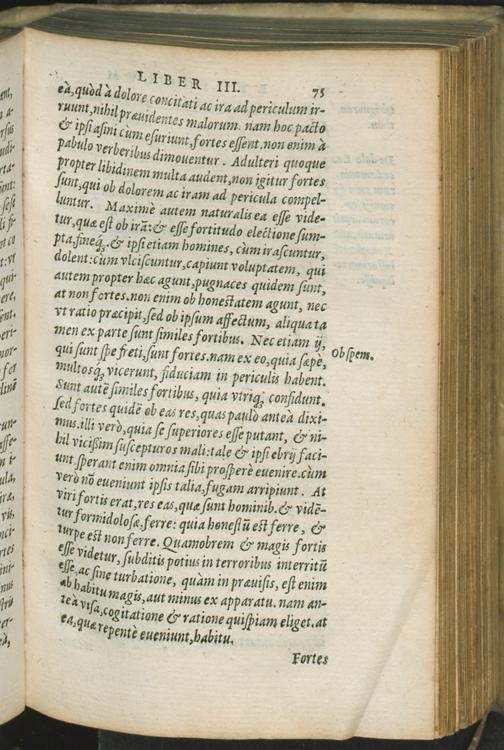 LIBER III. 75
eà, quòd à dolore concitati ac ira ad periculum ir-
ruunt, nihil præuidentes malorum. nam hoc pacto
& ipsi asini cùm esuriunt, fortes essent. non enim à
pabulo verberibus dimouentur. Adulteri quoque
propter libidinem multa audent, non igitur fortes
sunt, qui ob dolorem ac iram ad pericula compel-
luntur. Maximè autem naturalis ea esse vide-
tur, quæ est ob irā: & esse fortitudo electione sum-
pta, fineq́; & ipsi etiam homines, cùm irascuntur,
dolent: cùm vlciscuntur, capiunt voluptatem, qui
autem propter hæc agunt, pugnaces quidem sunt,
at non fortes. non enim ob honestatem agunt, nec
vt ratio præcipit, sed ob ipsum affectum, aliqua ta
men ex parte sunt similes fortibus. Nec etiam ij,
qui sunt spe freti, sunt fortes. nam ex eo, quia sæpè,
Ob spem.
multosq́; vicerunt, fiduciam in periculis habent.
Sunt autē similes fortibus, quia vtriq; confidunt.
sed fortes quidē ob eas res, quas paulò anteà dixi-
mus. illi verò, quia se superiores esse putant, & ni-
hil vicißim suscepturos mali: tale & ipsi ebrij faci-
unt. sperant enim omnia sibi prosperè euenire. cùm
verò nō eueniunt ipsis talia, fugam arripiunt. At
viri fortis erat, res eas, quæ sunt hominib. & vidē-
tur formidolosæ, ferre: quia honestū est ferre, &
turpe est non ferre. Quamobrem & magis fortis
esse videtur, subditis potius in terroribus interritū
esse, ac sine turbatione, quàm in præuisis, est enim
ab habitu magis, aut minus ex apparatu. nam an-
teà visa, cogitatione & ratione quispiam eliget. at
ea, quæ repentè eueniunt, habitu.
Fortes